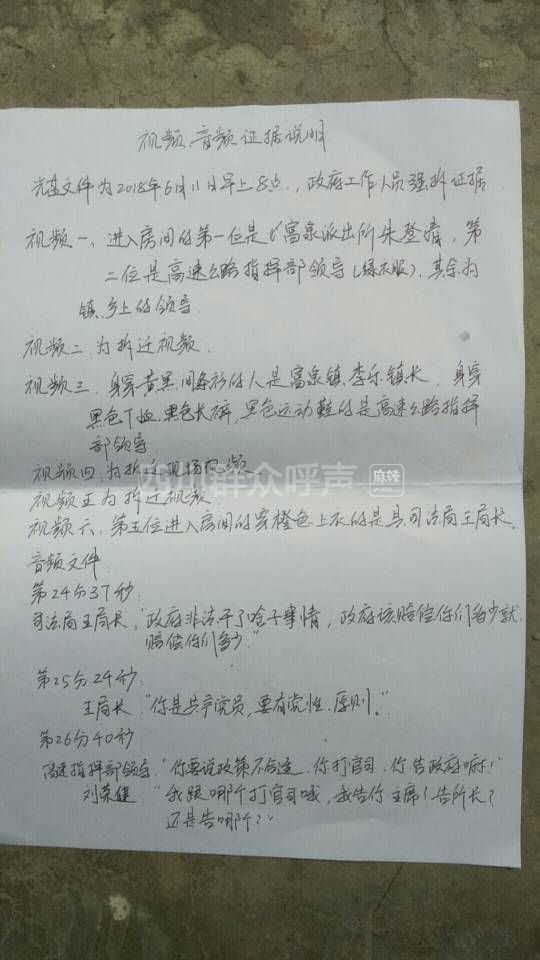 视频、音频证据说明
光盘文件为2018年6月11日早上8点，政府工作人员强拆证据
视频一、进入房间的第一位是富泉派出所朱登清，第
二位是高速公路指挥部领导（绿衣服），其余为
镇、乡上的领导.
视频二为拆迁视频.
视频三，身穿黄黑间条衫的人是富泉镇 李乐镇长，身穿
黑色T恤，黑色长裤，黑色运动鞋的是高速公路指挥
部领导
视频四.为拆迁现场视频
视频五为拆迁视频.
视频六，第五位进入房间的穿橙色上衣的是县司法局王局长.
音频文件
第24分37秒：
司法局王局长，“政府非法干了啥子事情，政府该赔偿你们多少就
赔偿你们多少”
第25分24秒：
王局长“你是共产党员，要有党性、原则。”
第26分40秒
高速指挥部领导“你要说政策不合适.你打官司.你告政府嘛!”
刘荣健“我跟哪个打官司哦，我告你主席？告所长？
还是告哪个？”
四川群众呼声
麻辣
mala.cn